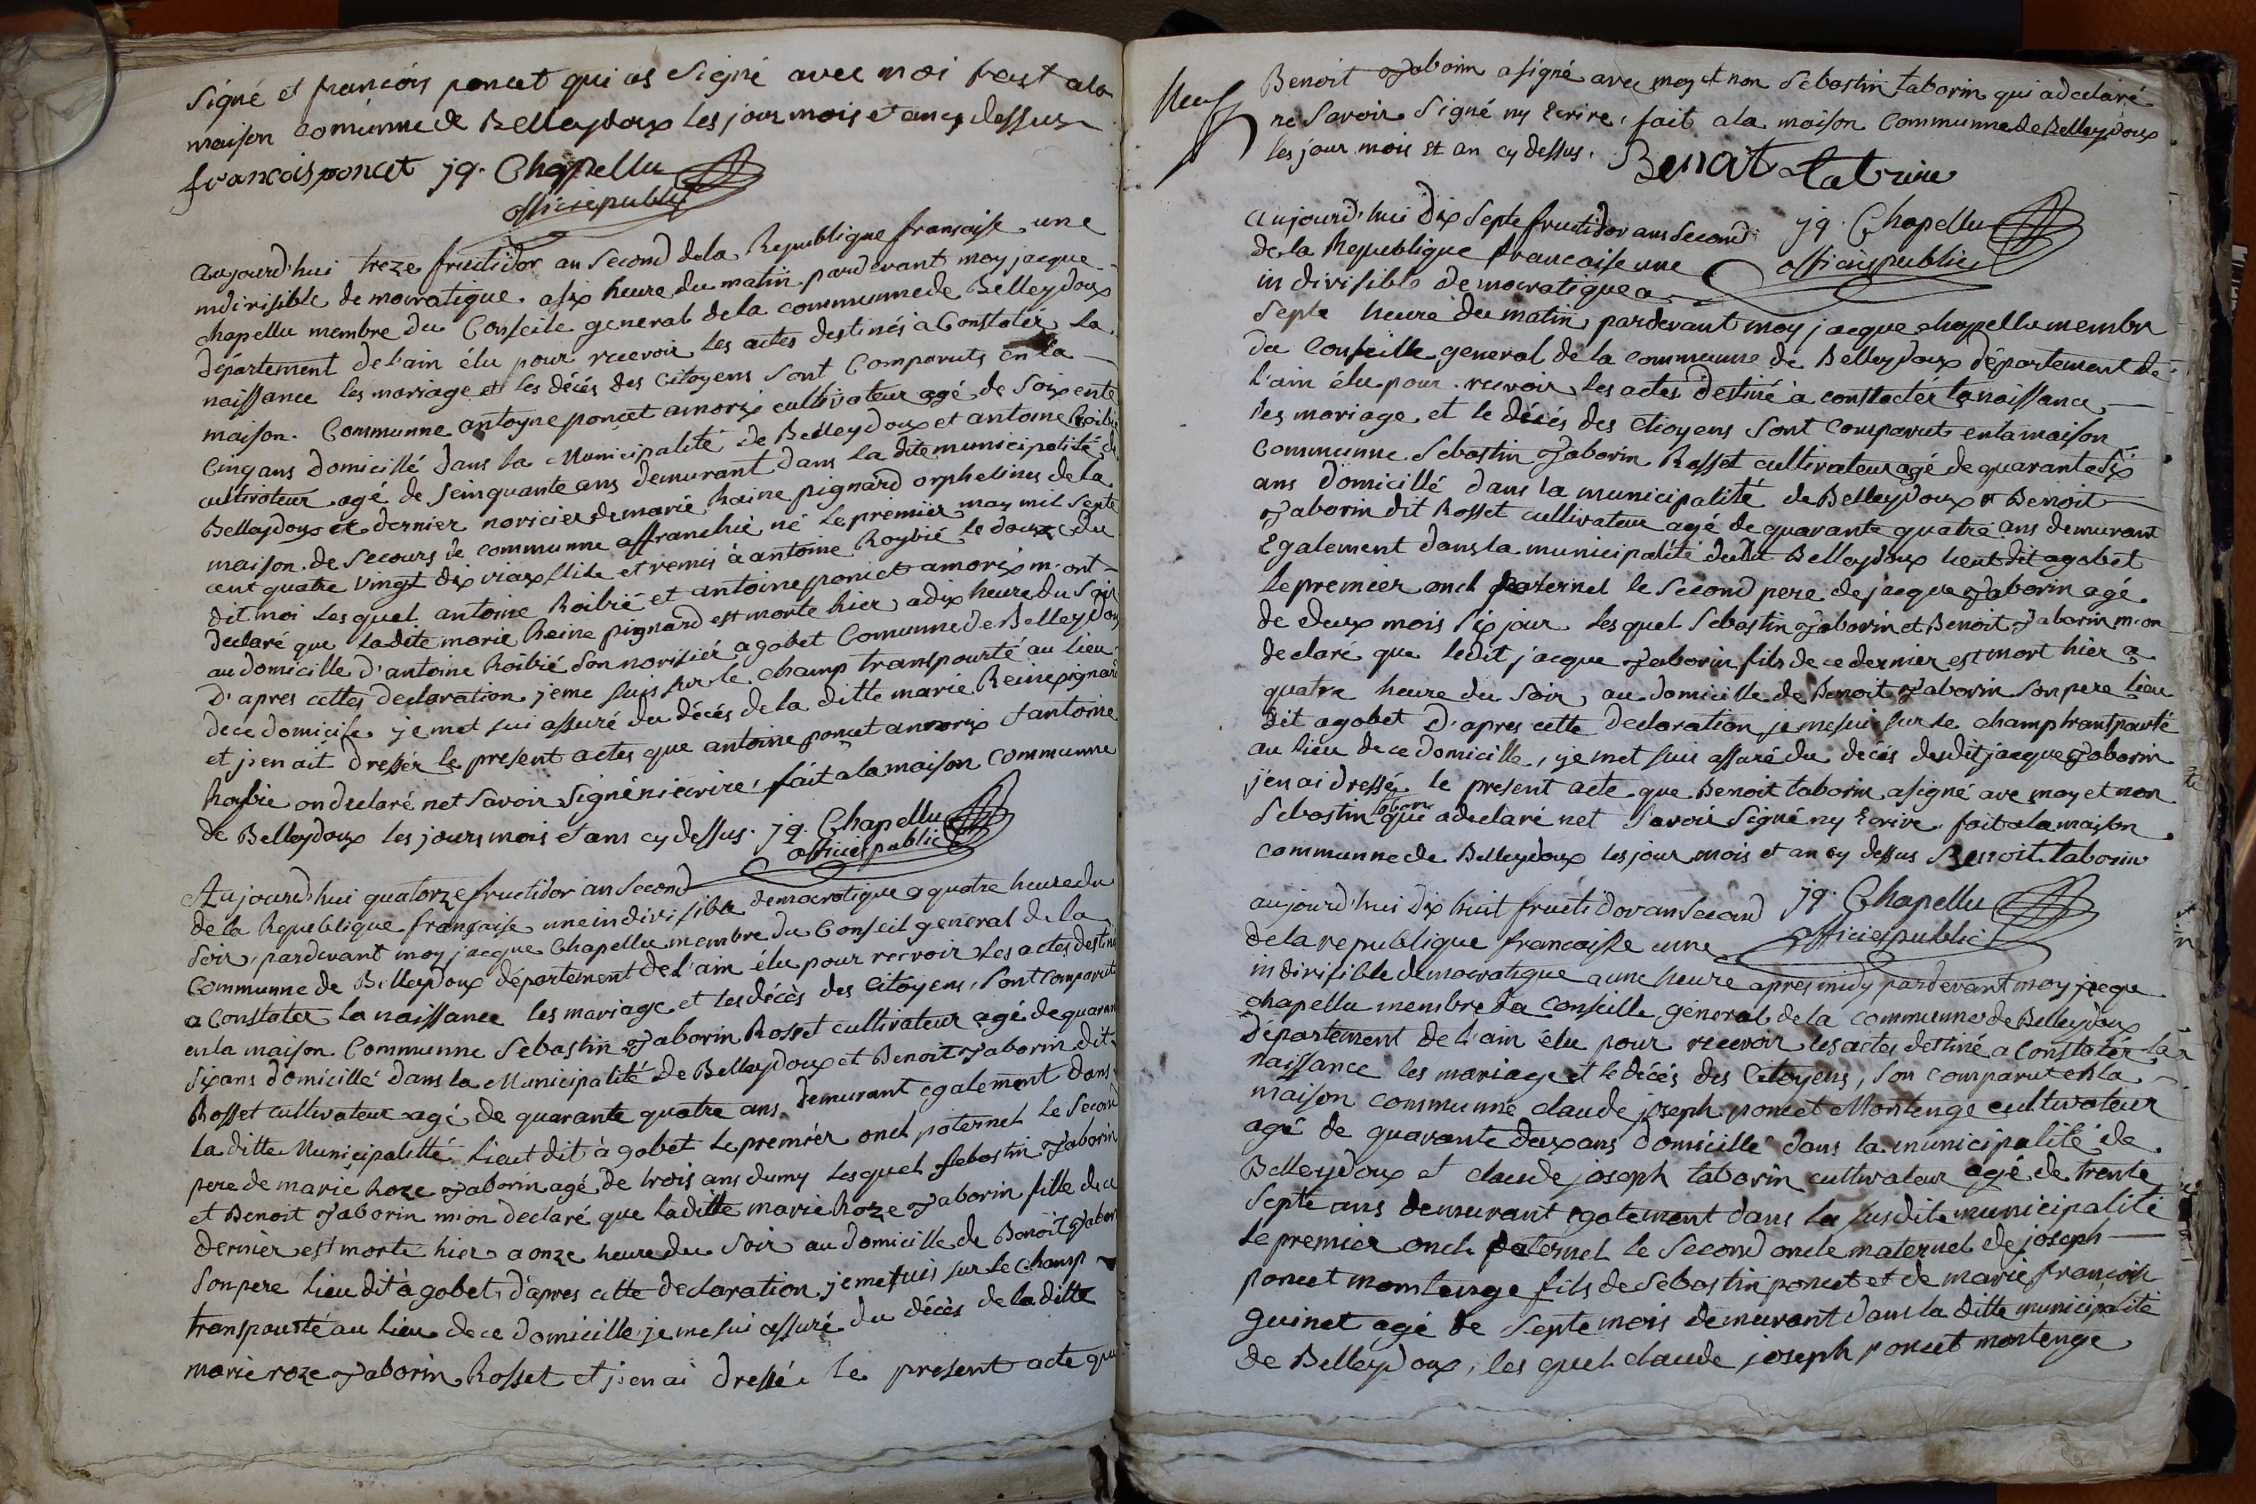 Signé et francois poncet qui as Signé avec moi fait ala
maison comunne de Belleydoux les jour mois et an cy dessus
francois poncet jq. Chapellu
officiepublic
aujourd'hui treze fructidor an Second dela Republique francaise une
indivisible democratique. asix heure du matin pardevant moy jacque
chapellu membre du Conseile general de la communne de Belleydoux
département de l'ain élu pour recevoir les actes destinés a Constatér la
naissance les mariage et les décés des Citoyens sont Comparuts en la
maison. Communne antoyne poncet amorix cultivateur agé de soixente
Cinq ans domicillé dans la Municipalité de Belleydoux et antoine Roibié
cultivateur agé de Seinquante ans demurant dans la dite municipalité de
Belleydoux et dernier noricier de marie Raine pignard orpheline de la
maison de Secours de communne affranchie né le premier may mil Septe
cent quatre vingt dix viaux Stile et remis à antoine Roybié le douze du
dit moi Lesquel antoine Roibié et antoine poncet amorix m'ont
declaré que ladite marie Reine pignard est morte hier adix heure du Soir
au domicille d'antoine Roibié Son norisiér agobet Comunne de Belleydoux
D'apres cettes declaration jeme suis sur le champ transpourté au lieu
de ce domicile je met sui assuré du décés de la ditte marie Reine pignard
et j'en ait dressér le present actes que antoine poncet amorix et antoine
Roybie on declaré net Savoir Signé ni écrire, fait ala maison communne
de Belleydoux les jours mois et ans cy dessus. jq. Chapellu
officiepublic
Aujourd'hui quatorze fructidor an Second
de la Republique française une indivisible democratique a quatre heure du
Soir, pardevant moy jacque Chapellu membre du Conseil general de la
Communne de Belleydoux département de l'ain élu pour recevoir les actes destiné
a Constater la naissance les mariage et les décès des Citoyens, Sont comparut
en la maison Communne Sebastin Taborin Rosset cultivateur agé de quarante
Six ans domicillé dans la Municipalité de Belleydoux et Benoit Taborin dit
Rosset cultivateur agé de quarante quatre ans demurant egalement dans
la ditte Municipalitté Lieut dit à gobet Le premiér oncl paternel Le Second
pere de marie Roze Taborin agé de trois ans dumy Lesquel Sebastin Taborin
et Benoit Taborin m'on declaré que laditte marie Roze Taborin fille de ce
dernier est morte hier a onze heure du Soir au domicille de Benoit Taborin
Son pere Lieu dit à gobet, d'apres cette declaration jeme suis sur le champ
transpourté au lieu de ce domicille je me sui assuré du décès de la ditte
marie roze Taborin Rosset et j'en ai dressé le present acte que
neuf
Benoit Taborin a signé avec moy et non Sebastin taborin qui a declaré
ne Savoir Signé ny Ecrire, fait ala maison Communne de Belleydoux
les jour mois et an cy dessus. Benoit
aujourd'hui dix Septe fructidor ans Second jq. Chapellu
de la Republique francaise une officiepublic
indivisible democratique a
Septe heure du matin pardevant moy jacque chapellu membre
du Conseille general de la communne de Belleydoux département de
l'ain élu pour recevoir les actes destiné à constatér la naissance
les mariage et le décés des citoyens Sont comparut en la maison
Communne Sebastin Taborin Rosset cultivateur agé de quarante Six
ans domicillé dans la municipalité de Belleydoux et Benoit
Taborin dit Rosset cultivateur agé de quarante quatre ans demurant
Egalement dans la municipalité dudit Belleydoux lieut dit agobet
Le premier oncl paternel le Second pere de jacque Taborin agé
de deux mois Six jour lesquel Sebastin Taborin et Benoit Taborin m'on
declaré que ledit jacque Taborin fils de ce dernier est mort hier a
quatre heure du Soir au domicille de Benoit Taborin son pere lieu
dit agobet D'apres cette declaration je mesui sur le champ transpourté
au lieu de ce domicille, je met sui assuré du décés dudit jacque Taborin
j'en ai dressé le present acte que Benoit taborin asigné ave moy et non
Sebastin taborin qui a declaré net Savoir Signé ny Ecrire fait ala maison
communne de Belleydoux les jour mois et an cy dessus Benoit taborin
aujourd'hui dix huit fructidor an Second jq. Chapellu
de la republique francaisse unne officiepublic
indivisible democratique a une heure apres midy pardevant moy jacque
chapellu membre du conseille general de la communne de Belleydoux
département de l'ain élu pour recevoir les actes destiné a constatér la
naissance les mariage et le décés des Citoyens, Son comparut en la
maison communne claude joseph poncet Montenge cultivateur
agé de quarante deux ans domicillé dans la municipalité de
Belleydoux et claude joseph taborin cultivateur agé de trente
Septe ans demurant egalement dans la susdite municipalité
le premier oncl paternel le Second oncle maternel de joseph
poncet montenge fils de Sebastin poncet et de marie francois
guinet agé de Septe mois demurant dans la ditte municipalité
de Belleydoux, les quel claude joseph poncet montenge